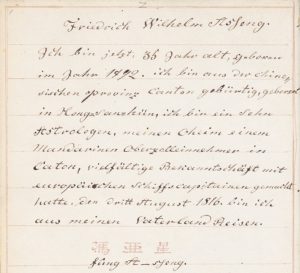 2
Friedrich Wilhelm Asseng.
Ich bin jetzt 36 Jahr alt, geboren
im Jahr 1792. ich bin aus der Chine-
sischen provinz Canton gebürtig, geboren
in Heong-San-hün, ich bin ein Sohn
Astrologen, meinen Oheim einem
Mandarinen Oberzolleinnehmer in
Caton, vielfältige Bekanntschaft mit
europäischen Schiffscapitainen gemacht
hatte. den dritt August 1816. bin ich
aus meinen Vaterland Reisen.
馮亞星
fung A-sseng.